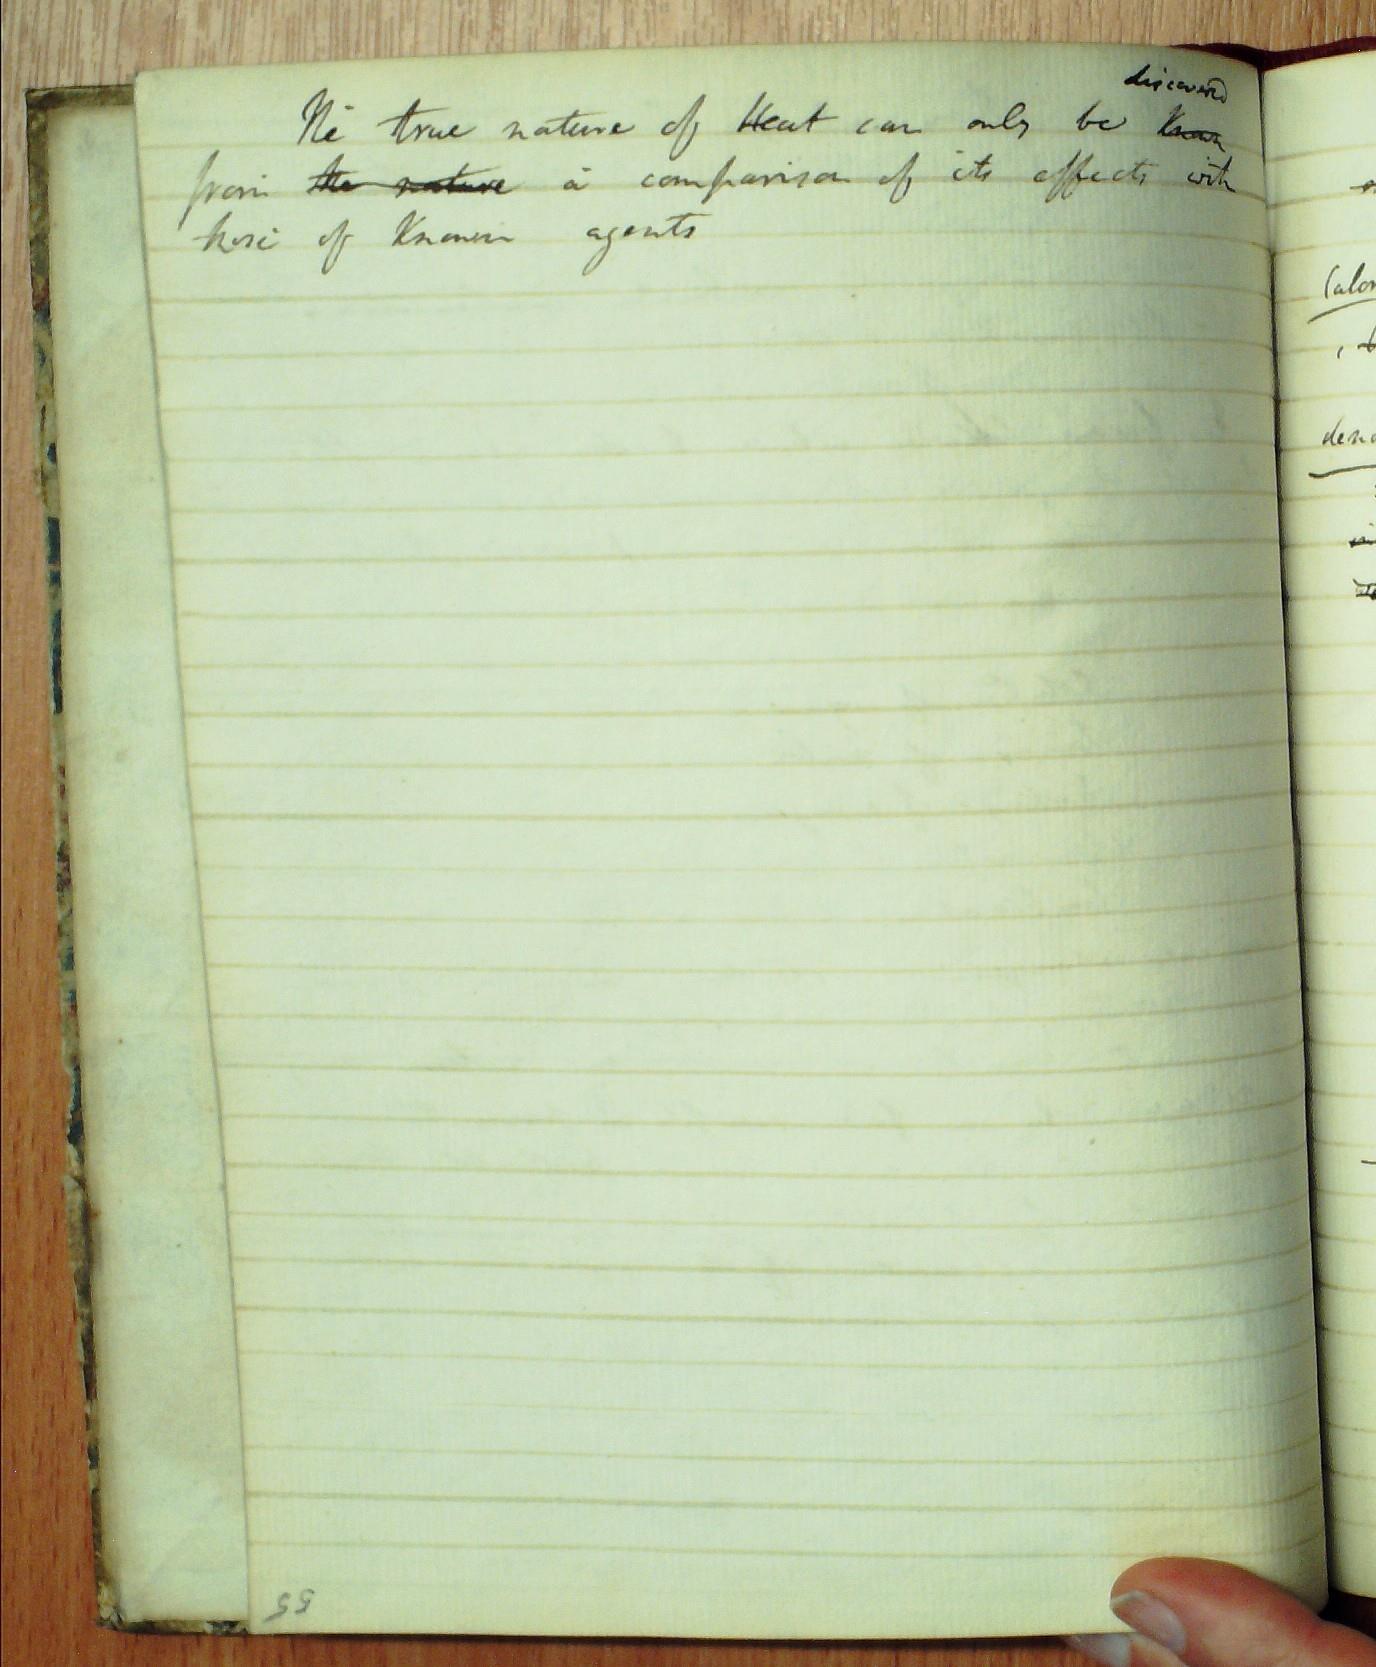 discovered
The true nature of Heat can only be Known
from the nature a comparison of its effects with
those of Known agents
55
Calor